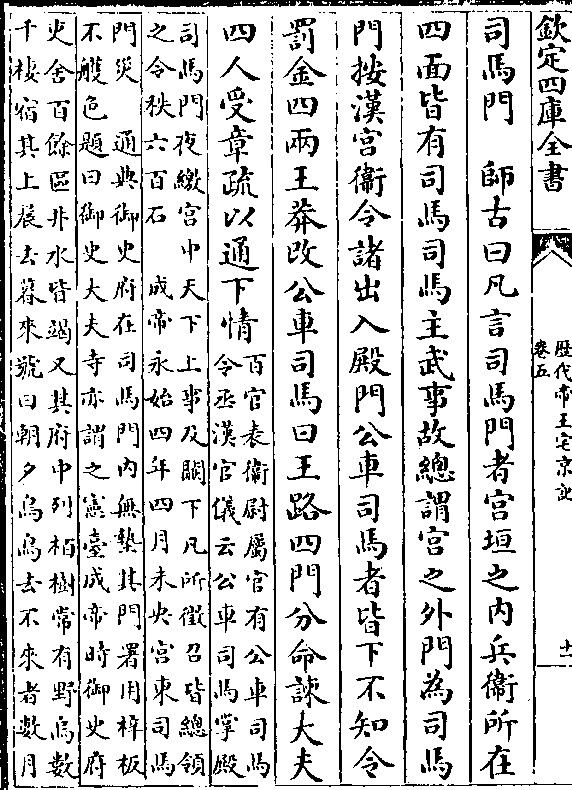 欽定四庫全書
歴代帝王宅京記
卷五
十一
司馬門　師古曰凡言司馬門者宮垣之内兵衞所在
四面皆有司馬司馬主武事故總謂宮之外門為司馬
門按漢宮衞令諸出入殿門公車司馬者皆下不知令
罰金四兩王莽改公車司馬曰王路四門分命諫大夫
四人受章疏以通下情
百官表衞尉屬官有公車司馬
令丞漢官儀云公車司馬掌殿
司馬門夜繳宮中天下上事及闕下凡所徵召皆總領
之令秩六百石　成帝永始四年四月未央宮東司馬
門災　通典御史府在司馬門内無塾其門署用梓板
不雘色題曰御史大夫寺亦謂之憲臺成帝時御史府
吏舍百餘區井水皆竭又其府中列栢樹常有野烏數
千棲宿其上晨去暮來號曰朝夕烏烏去不來者數月